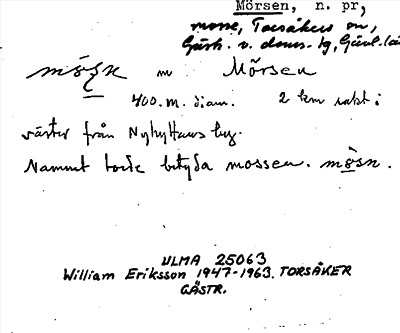 Mörsen, n. pr,
mosse, Torsåkers sn,
Gästr. v. doms. tg, Gävl. län
mösn m Mörsen
400 m. diam. 2 km rakt i
väster från Nyhyttans by.
Namnet torde betyda mossen. mösn.
ULMA 25063
William Eriksson 1947-1963. TORSÅKER
GÄSTR.